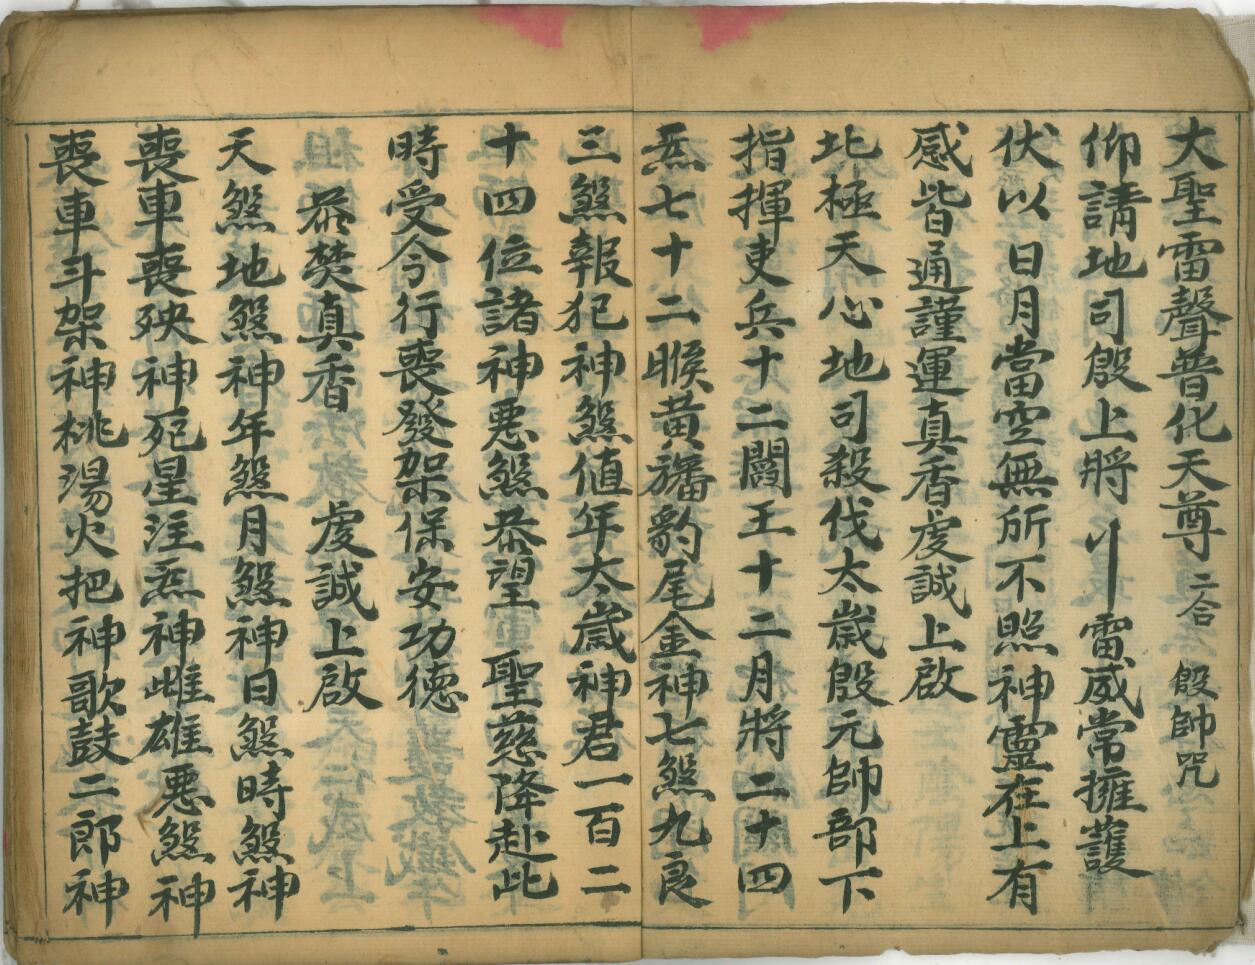 大聖雷聲普化天尊 二合 殷帥咒
仰請地司殷上將 雷威常擁護
伏以日月當空無所不照神靈在上有
感皆通謹運真香虔誠上啟
北極天心地司殺伐太歲殷元帥部下
指揮吏兵十二閣王十二月將二十四
炁七十二睺黃旛豹尾金神七煞九良
三煞報犯神煞值年太歲神君一百二
十四位諸神惡煞恭望 聖慈降赴此
時受令行喪發架保安功德
恭焚真香 虔誠上啟
天煞地煞神年煞月煞神日煞時煞神
喪車喪殃神死星注炁神雌雄惡煞神
喪車斗架神桃湯火把神歌鼓二郎神